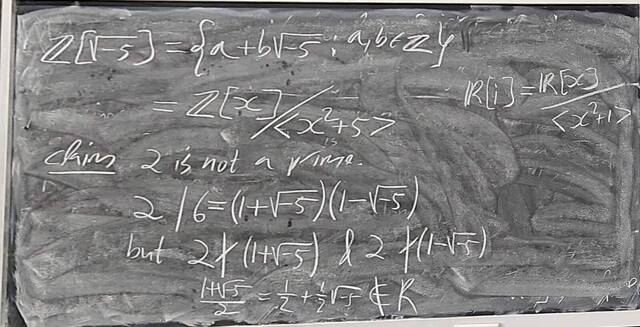 Z[√-5] = {a+b√-5 : a,b∈Z}
= Z[x]/<x²+5>
R[i] = R[x]/<x²+1>
Claim 2 is not a prime.
2 | 6 = (1+√-5)(1-√-5)
but 2∤(1+√-5) & 2∤(1-√-5)
(1+√-5)/2 = 1/2 + 1/2√-5 ∉ R